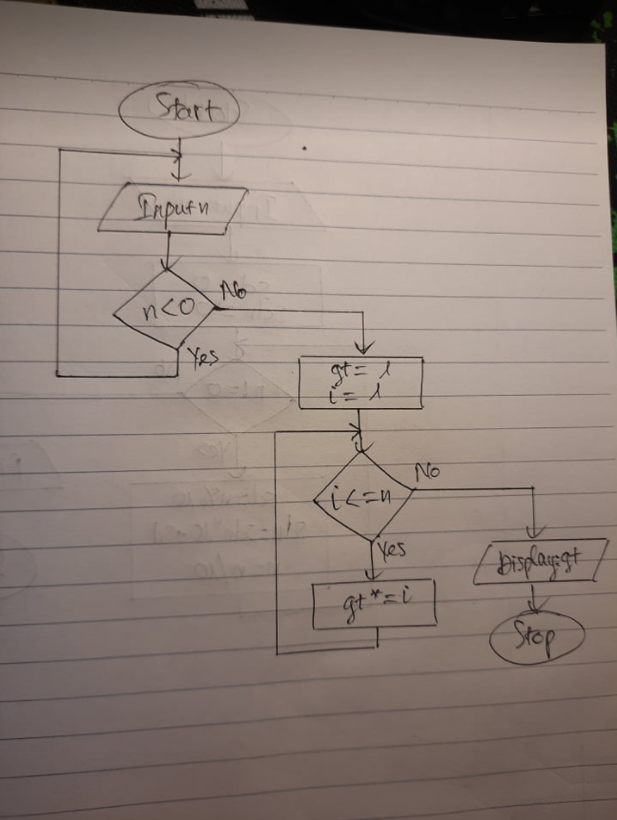 Start
Input n
n<0
No
Yes
gt= 1
i= 1
i<=n
No
Yes
Display:gt
gt*=i
Stop